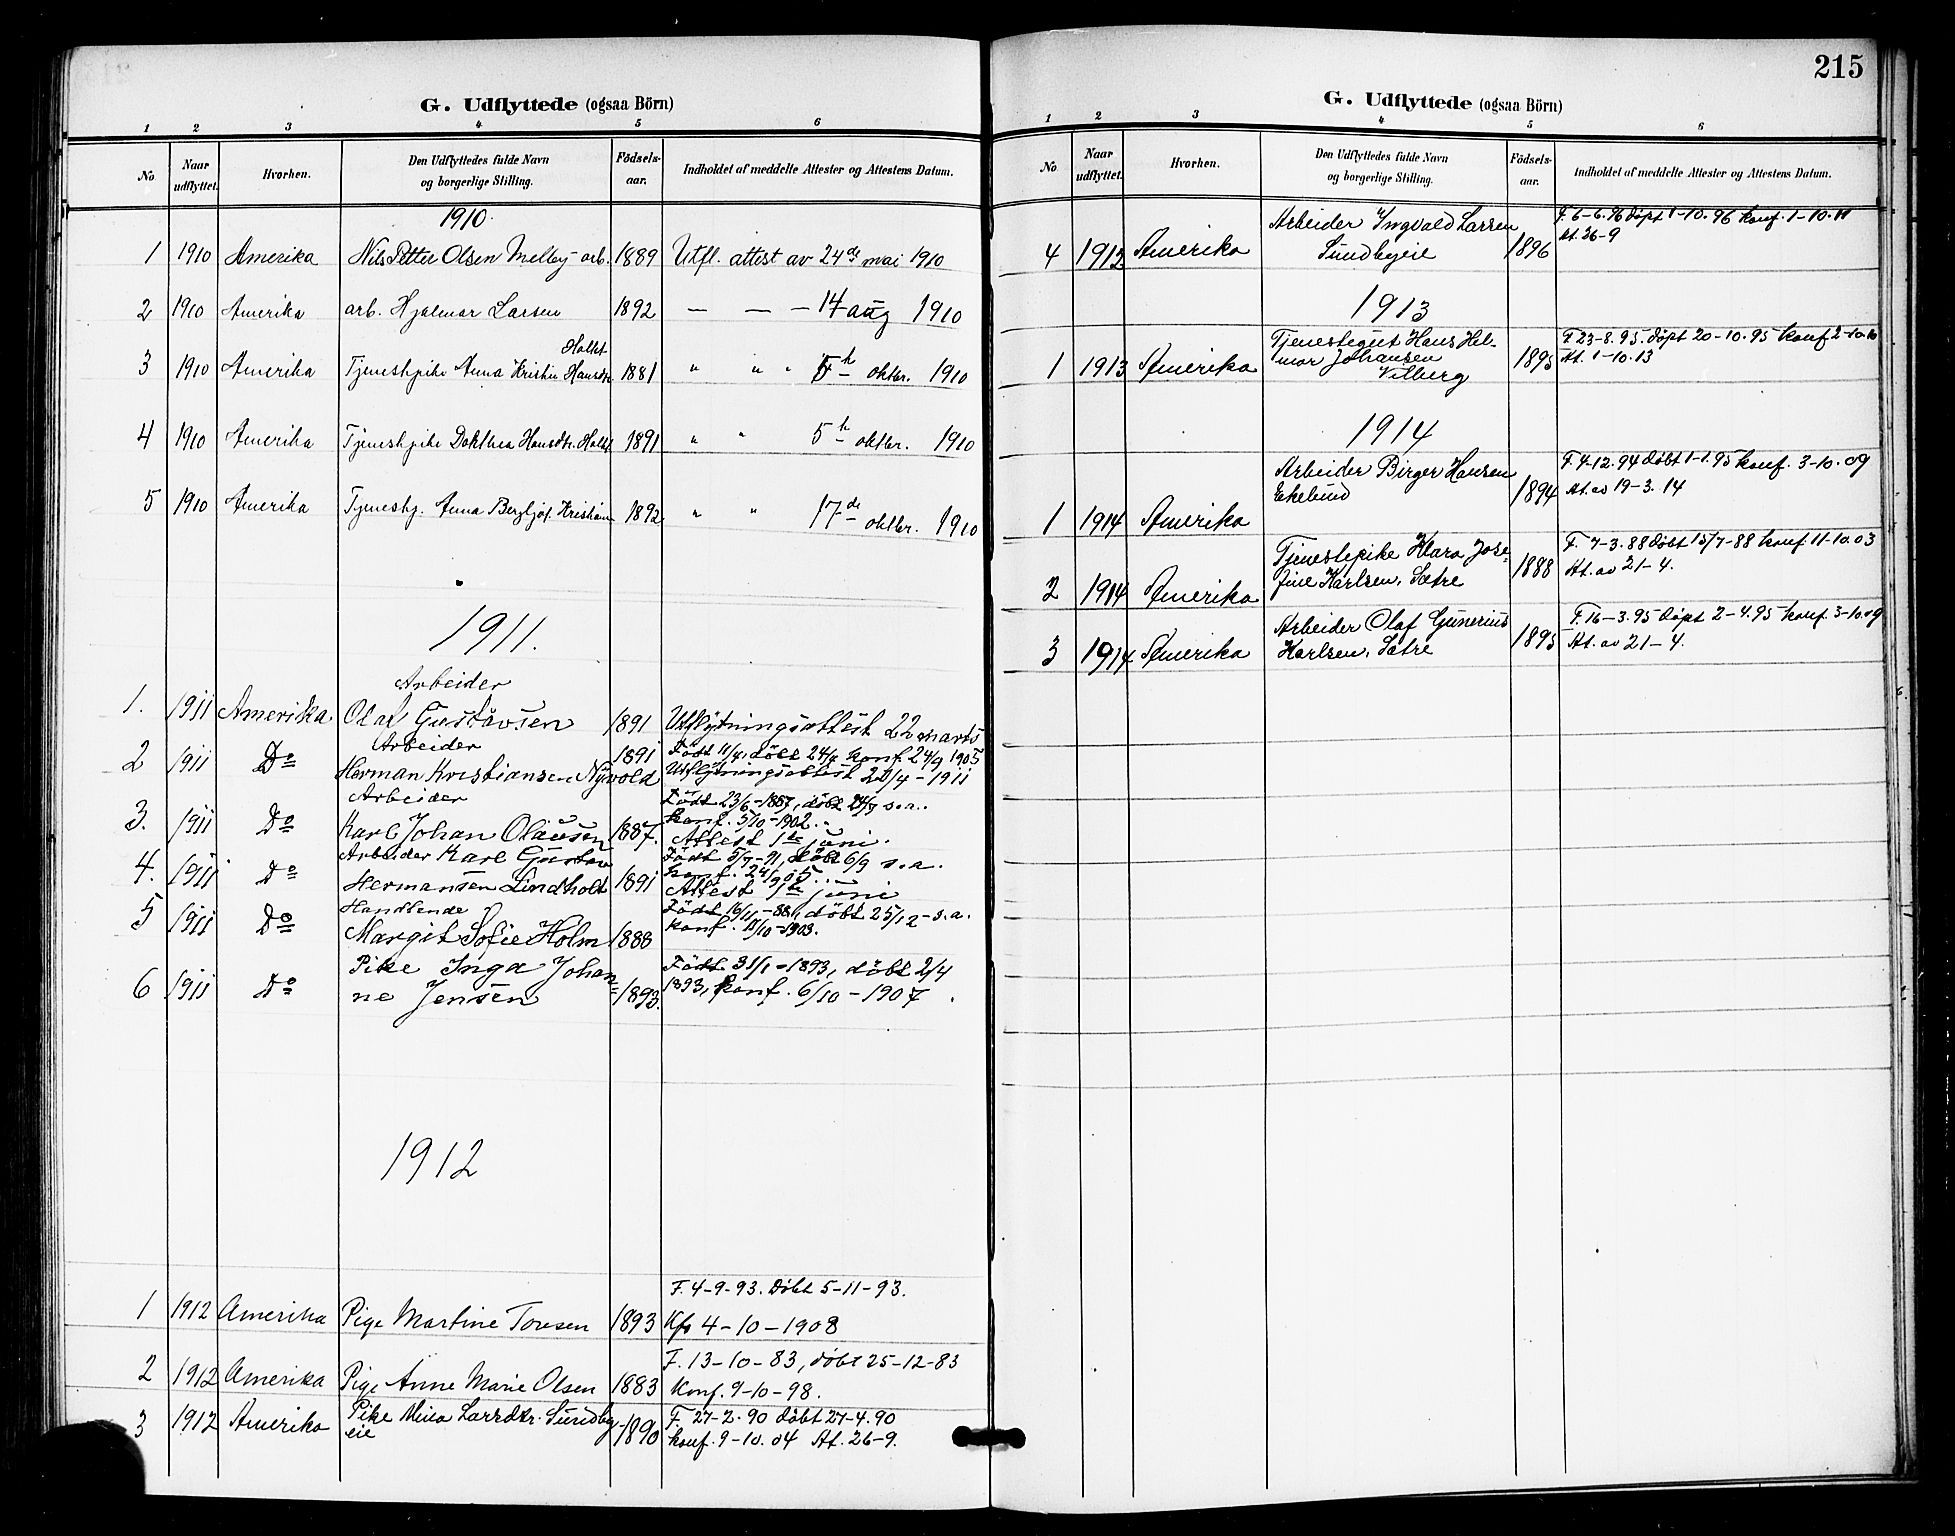 G. Udflyttede (ogsaa Börn)
1 2 3 4 5 6
No Naar udflyttet. Hvorhen. Den Udflyttedes fulde Navn og borgerlige Stilling. Födsels-aar. Indholdet af meddelte Attester og Attestens Datum.
1910.
1 1910 Amerika Nils Petter Olsen Melby - arb. 1889 Utfl. attest av 24de mai 1910
2 1910 Amerika arb. Hjalmar Larsen 1892 — — — 14 aug 1910
Holst
3 1910 Amerika Tjenestpike Anna Kristin Hansdr 1881 " " " 5h oktbr. 1910
4 1910 Amerika Tjenestpike Dorthea Hansdtr. Holst 1891 " " 5h oktbr. 1910
5 1910 Amerika Tjenestp. Anna Bergljot Kristians 1892 " " 17de oktbr. 1910
1911.
Arbeider
1. 1911 Amerika Olaf Gustavsen 1891 Utflytningsattest 22 marts
Arbeider 1891 Födt 11/4, döbt 24/4 konf. 24/9 1905
2 1911 Do Herman Kristiansen Nyvold Utflytningsattest 22/4 - 1911
Arbeider Födt 23/6 - 1887, döbt 24/7 s.a.
3. 1911 Do Karl Johan Olausen 1887. konf. 5/10 - 1902.
Attest 1ste juni.
Arbeider Karl Gustav Födt 5/7 - 91, döbt 6/9 s.a.
4. 1911 Do Hermansen Lindholt 1891 konf. 24/9 05.
Attest 7de juni
Handlende Födt 16/11 - 88, döbt 25/12 - s.a.
5 1911 Do Margit Sofie Holm 1888 konf. 11/10 - 1903.
Pike Inga Johan= Födt 31/1 - 1893, döbt 2/4
6 1911 Do ne Jensen 1893. 1893, konf. 6/10 - 1907.
1912
F. 4-9-93. Döbt 5-11-93.
1 1912 Amerika Pige Martine Toresen 1893 Kfr 4-10-1908
F. 13-10-83, döbt 25-12-83
2 1912 Amerika Pige Anne Marie Olsen 1883 Konf. 9-10-98.
3 1912 Amerika Pike Mina Larsdtr. Sundby- 1890 F. 27-2.90 döbt 27-4.90
eie konf. 9-10.04 At. 26-9.
215
G. Udflyttede (ogsaa Börn)
1 2 3 4 5 6
No Naar udflyttet. Hvorhen. Den Udflyttedes fulde Navn og borgerlige Stilling. Födsels-aar. Indholdet af meddelte Attester og Attestens Datum.
Arbeider Ingvald Larsen F. 6-6.96 döpt 1-10.96 konf. 1-10.11
4 1912 Amerika Sundbyeie 1896 At. 26-9
1913
Tjenestegut Hans Hel- F. 23-8.95 döpt 20-10.95 konf 2-10.10
1 1913 Amerika mar Johansen 1895 At. 1-10.13
Vilberg
1914
Arbeider Birger Hansen F. 4-12.94 döbt 1-1.95 konf. 3-10.09
1 1914 Amerika Ekelund 1894 At. av 19-3.14
Tjenestepike Klara Jose- F. 7-3.88 döbt 15/7-88 konf 11-10.03
2 1914 Amerika fine Karlsen, Sætre 1888 At. av 21-4.
Arbeider Olaf Gunerius F. 16-3.95 döpt 2-4.95 konf. 3-10.09
3 1914 Amerika Karlsen, Sætre 1895 At. av 21-4.